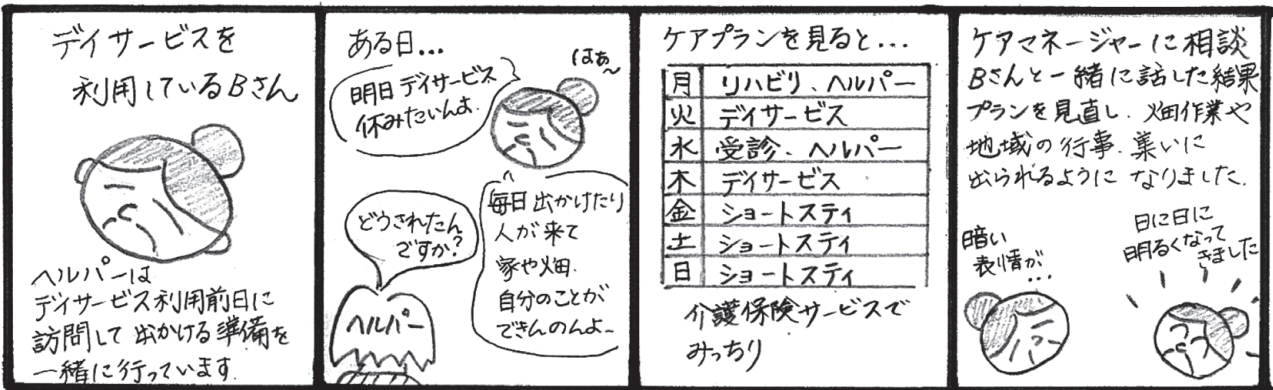 デイサービスを
利用しているBさん
ヘルパーは
デイサービス利用前日に
訪問して出かける準備を
一緒に行っています.
ある日...
はぁ〜
明日デイサービス
休みたいんよ.
どうされたん
ですか?
ヘルパー
毎日出かけたり
人が来て
家や畑.
自分のことが
できんのんよ〜
ケアプランを見ると...
月 リハビリ、ヘルパー
火 デイサービス
水 受診、ヘルパー
木 デイサービス
金 ショートスティ
土 ショートスティ
日 ショートスティ
介護保険サービスで
みっちり
ケアマネージャーに相談
Bさんと一緒に話した結果
プランを見直し、畑作業や
地域の行事、集いに
出られるようになりました.
暗い
表情が
...
日に日に
明るくなって
きました